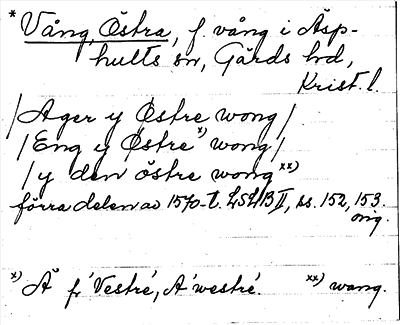 * Vång, Östra, f. vång i Äsp-
hults sn, Gärds hd,
Krist. l.
/Ager y Østre wong/
/Eng y Østre x) wong/
/y den östre wong xx)
förra delen av 1570-t. LSLB II, ss. 152, 153.
orig.
x) Ä fr Vestré, A' westré. xx) wang.